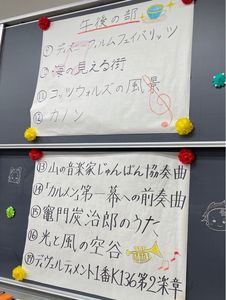 午後の部
⑨ディズニーフィルムフェイバリッツ
⑩海の見える街
⑪コッツウォルズの風景
⑫カノン
⑬山の音楽家じゃんぱん協奏曲
⑭「カルメン」第一幕への前奏曲
⑮竈門炭治郎のうた
⑯光と風の空谷
⑰ディヴェルティメント1番K136第2楽章